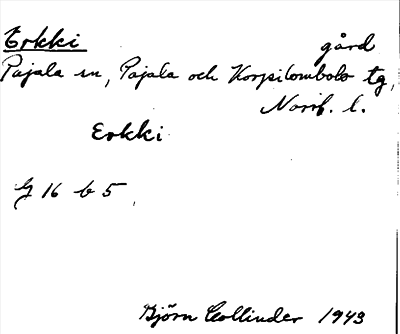 Erkki gård
Pajala sn, Pajala och Korpilombolo tg,
Norrb. l.
Erkki
G 16 b 5
Björn Collinder 1943